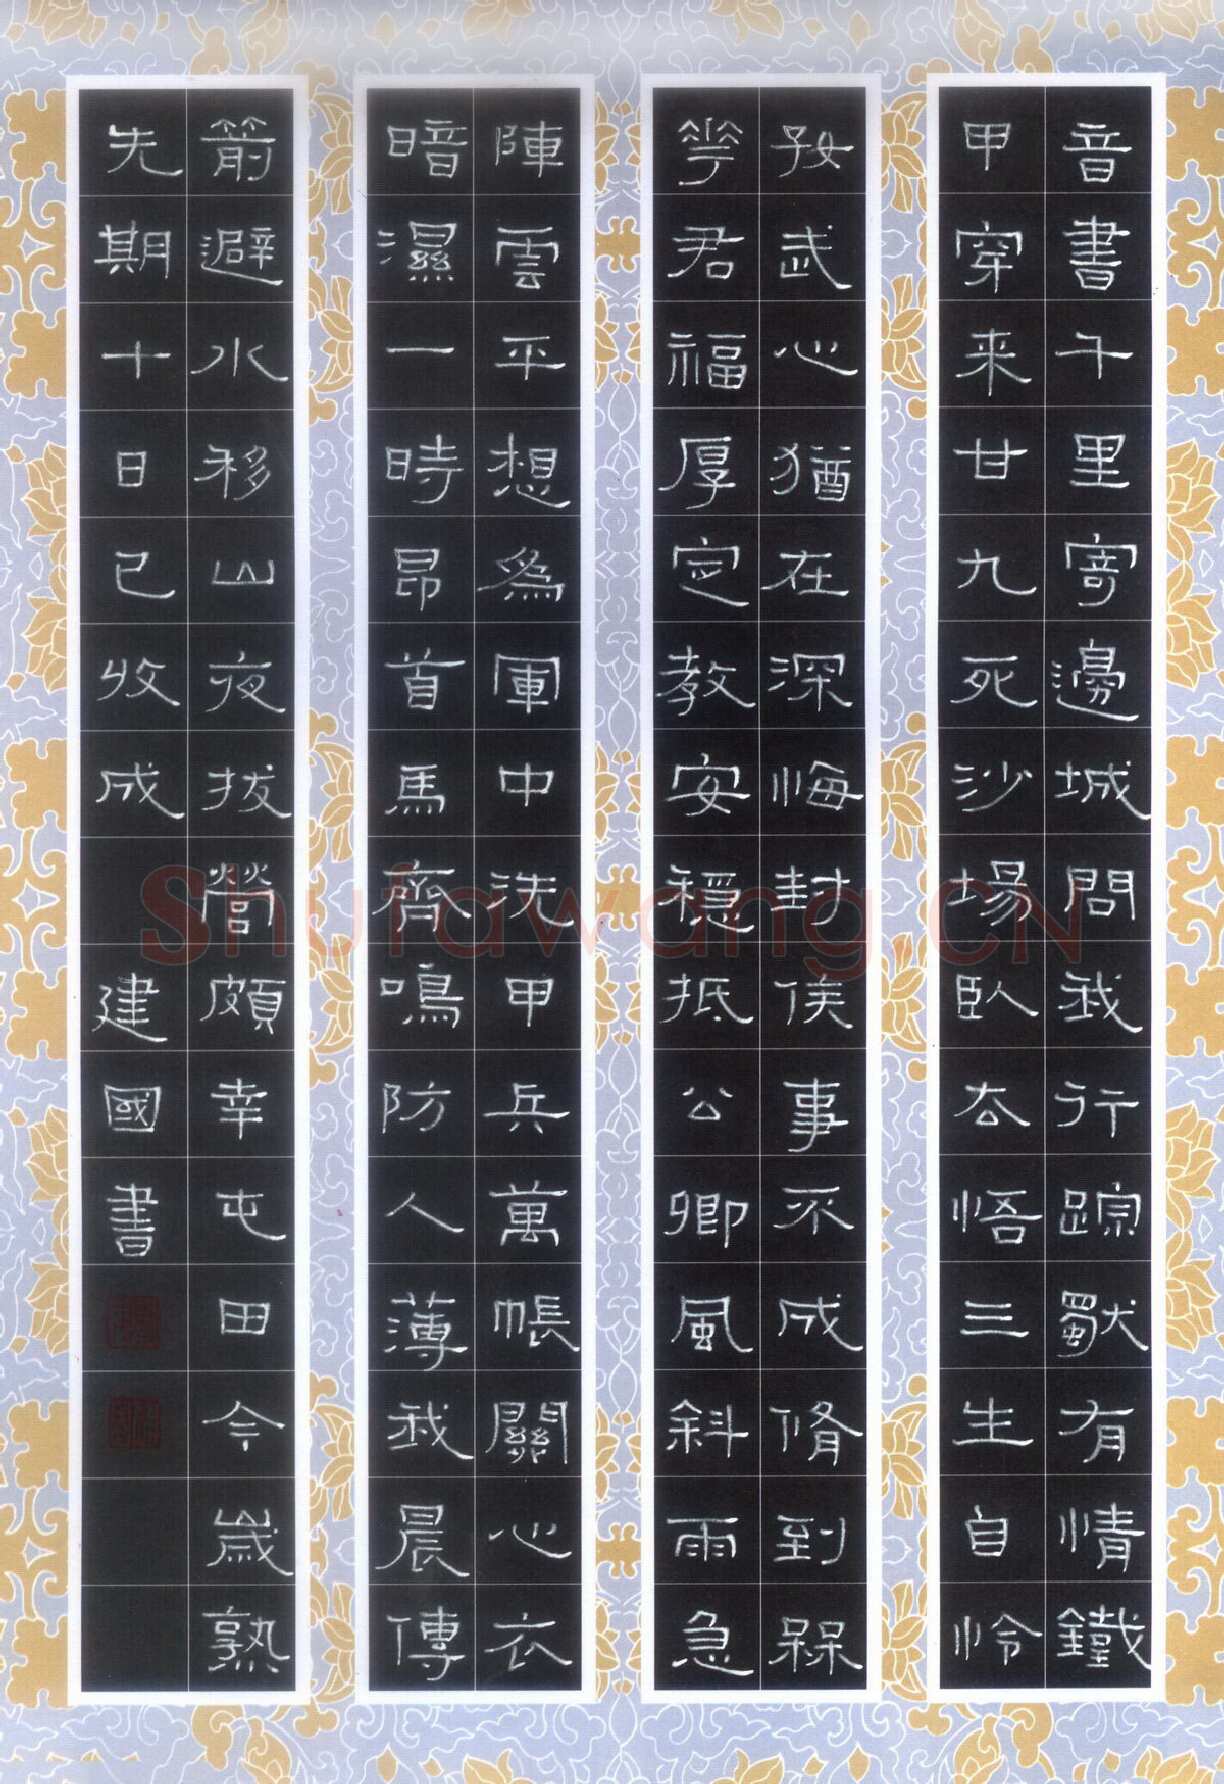 音書千里寄邊城問我行踪獨有情鐵
甲穿来甘九死沙場臥去悟三生自怜
好武心猶在深悔封侯事不成脩到槑
華君福厚定教安穩抵公卿風斜雨急
陣雲平想為軍中洗甲兵萬帳關心衣
暗濕一時昂首馬齊鳴防人薄我晨傳
箭避水移山夜拔營頗幸屯田今歲熟
先期十日已收成 建國書
Shufawang.CN